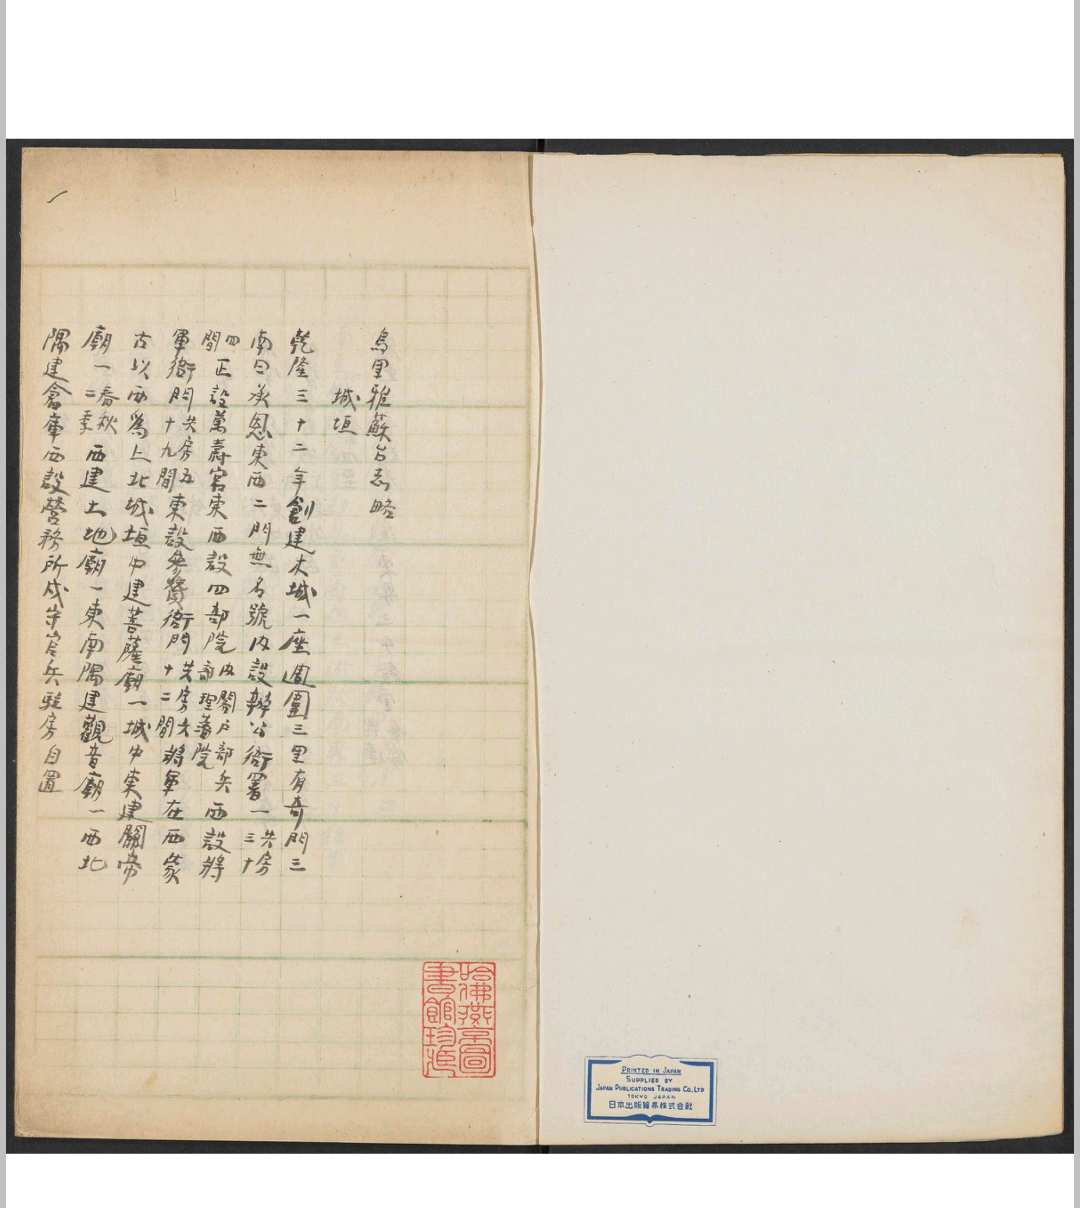 烏里雅蘇台志略
城垣
乾隆三十二年創建木城一座周圍三里有奇門三
南曰承恩東西二門無名號內設辦公衙署一共房三十
四間正設萬壽宮東西設四部院內閣戶部兵部理藩院西設將
軍衙門共房五十九間東設參贊衙門共房六十二間將軍在西蒙
古以西為上北城垣中建菩薩廟一城中東建關帝
廟一春秋二季西建土地廟一東南隅建觀音廟一西北
隅建倉庫西設營務所戍守官兵駐房自置
哈佛燕京圖書館珍藏
PRINTED IN JAPAN
SUPPLIED BY
JAPAN PUBLICATIONS TRADING CO., LTD
TOKYO JAPAN
日本出版貿易株式会社